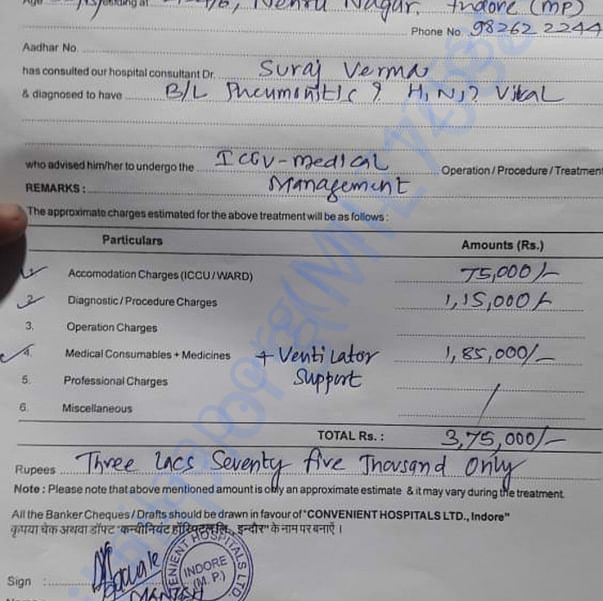 residing at Nehru Nagar, Indore (MP)
Phone No. 98262 2244
Aadhar No.
has consulted our hospital consultant Dr. Suraj Verma
& diagnosed to have B/L Pneumonitis ? H1N1? Viral
who advised him/her to undergo the ICCU-medical Operation / Procedure / Treatment
REMARKS : Management
The approximate charges estimated for the above treatment will be as follows :
Particulars Amounts (Rs.)
1. Accomodation Charges (ICCU / WARD) 75,000/-
2. Diagnostic / Procedure Charges 1,15,000/-
3. Operation Charges
4. Medical Consumables + Medicines + Ventilator 1,85,000/-
5. Professional Charges Support
6. Miscellaneous
TOTAL Rs. : 3,75,000/-
Rupees Three lacs Seventy five Thousand Only
Note : Please note that above mentioned amount is only an approximate estimate & it may vary during the treatment.
All the Banker Cheques / Drafts should be drawn in favour of "CONVENIENT HOSPITALS LTD., Indore"
कृपया चेक अथवा डॉफ्ट "कन्वीनियंट हॉस्पिटल्स लि., इन्दौर" के नाम पर बनाऐं ।
CONVENIENT HOSPITALS LTD.
INDORE
(M. P.)
Sign :